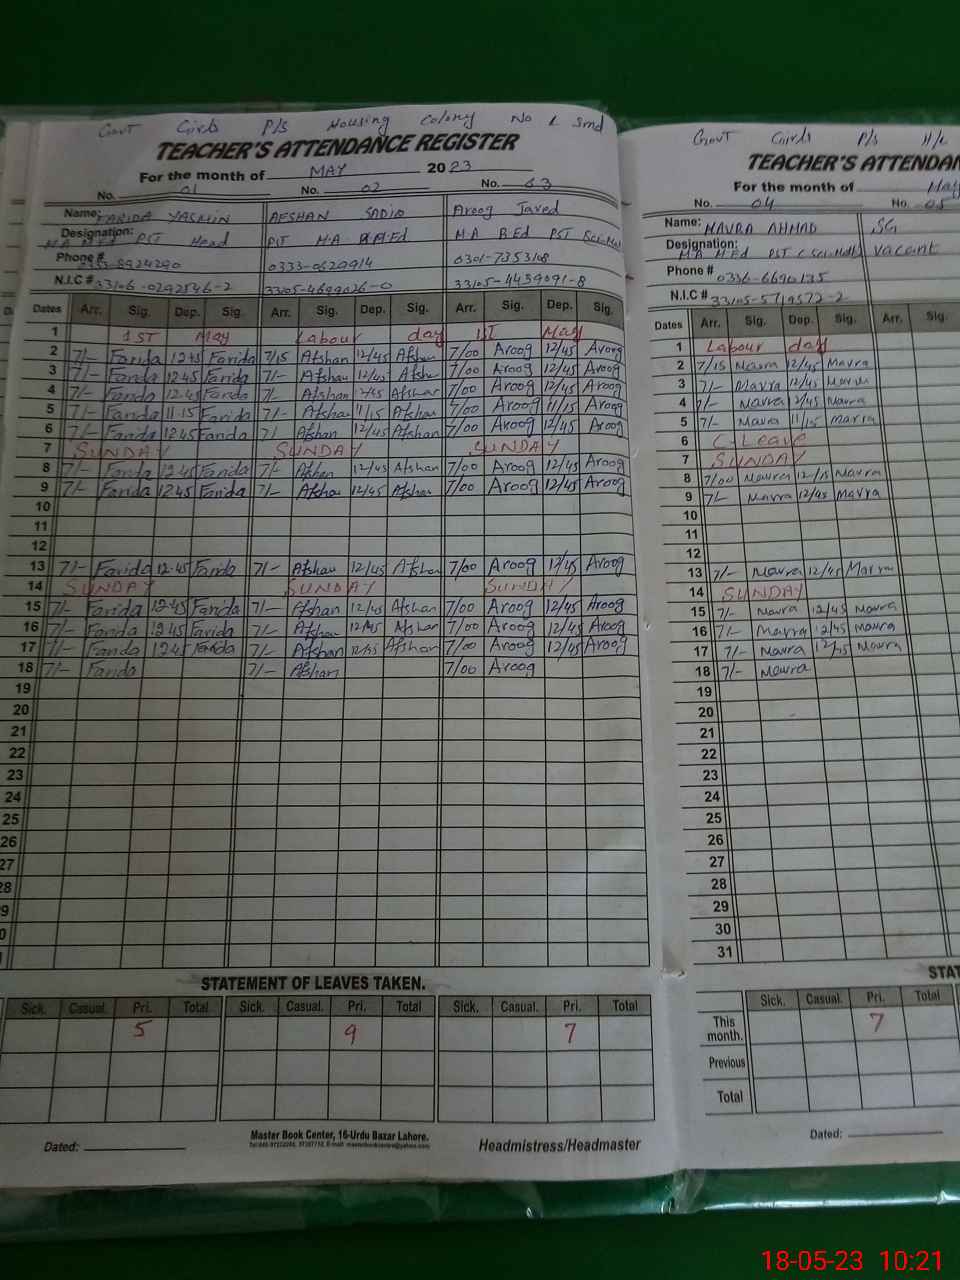 Govt Girls P/S Housing Colony No 1 Smd
TEACHER'S ATTENDANCE REGISTER
For the month of MAY 2023
No. 01 No. 02 No. 03
Name: FARIDA YASMIN AFSHAN SADIQ Aroog Javed
Designation: M.A M.Ed PST Head PST M.A M.Ed M.A B.Ed PST
Phone # 0333-0629914 0301-7353108
N.I.C # 33106-0292546-2 33105-4699026-0 33105-4439091-8
Dates Arr. Sig. Dep. Sig. Arr. Sig. Dep. Sig. Arr. Sig. Dep. Sig.
1 1ST May Labour day 1ST May
2 7/- Farida 12 45 Farida 7/15 Afshan 12/45 Afshan 7/00 Aroog 12/45 Aroog
3 7/- Farida 12 45 Farida 7/- Afshan 12/45 Afshan 7/00 Aroog 12/45 Aroog
4 7/- Farida 12 45 Farida 7/- Afshan 12/45 Afshan 7/00 Aroog 12/45 Aroog
5 7/- Farida 11.15 Farida 7/- Afshan 11/15 Afshan 7/00 Aroog 11/15 Aroog
6 7/- Farida 12 45 Farida 7/- Afshan 12/45 Afshan 7/00 Aroog 12/45 Aroog
7 SUNDAY SUNDAY SUNDAY
8 7/- Farida 12 45 Farida 7/- Afshan 12/45 Afshan 7/00 Aroog 12/45 Aroog
9 7/- Farida 12 45 Farida 7/- Afshan 12/45 Afshan 7/00 Aroog 12/45 Aroog
10
11
12
13 7/- Farida 12.45 Farida 7/- Afshan 12/45 Afshan 7/00 Aroog 12/45 Aroog
14 SUNDAY SUNDAY SUNDAY
15 7/- Farida 12 45 Farida 7/- Afshan 12/45 Afshan 7/00 Aroog 12/45 Aroog
16 7/- Farida 12 45 Farida 7/- Afshan 12/45 Afshan 7/00 Aroog 12/45 Aroog
17 7/- Farida 12 45 Farida 7/- Afshan 12/45 Afshan 7/00 Aroog 12/45 Aroog
18 7/- Farida 7/- Afshan 7/00 Aroog
19
20
21
22
23
24
25
26
27
28
STATEMENT OF LEAVES TAKEN.
Sick. Casual. Pri. Total Sick. Casual. Pri. Total Sick. Casual. Pri.
5 9 7
Dated:
Master Book Center, 16-Urdu Bazar Lahore.
Headmistress/Headmaster
Govt Girls P/S H/C
TEACHER'S ATTENDAN
For the month of May
No. 04 No. 05
Name: MAVRA AHMAD SG
Designation: M.A M.Ed PST vacant
Phone # 0336-6690135
N.I.C # 33105-5719572-2
Dates Arr. Sig. Dep. Sig. Arr. Sig.
1 Labour day
2 7/15 Mavra 12/45 Mavra
3 7/- Mavra 12/45 Mavra
4 7/- Mavra 12/45 Mavra
5 7/- Mavra 11/15 Mavra
6 C-Leave
7 SUNDAY
8 7/00 Mavra 12/15 Mavra
9 7/- Mavra 12/45 Mavra
10
11
12
13 7/- Mavra 12/45 Mavra
14 SUNDAY
15 7/- Mavra 12/45 Mavra
16 7/- Mavra 12/45 Mavra
17 7/- Mavra 12/45 Mavra
18 7/- Mavra
19
20
21
22
23
24
25
26
27
28
29
30
31
Sick. Casual. Pri. Total
This month. 7
Previous
Total
Dated:
18-05-23 10:21